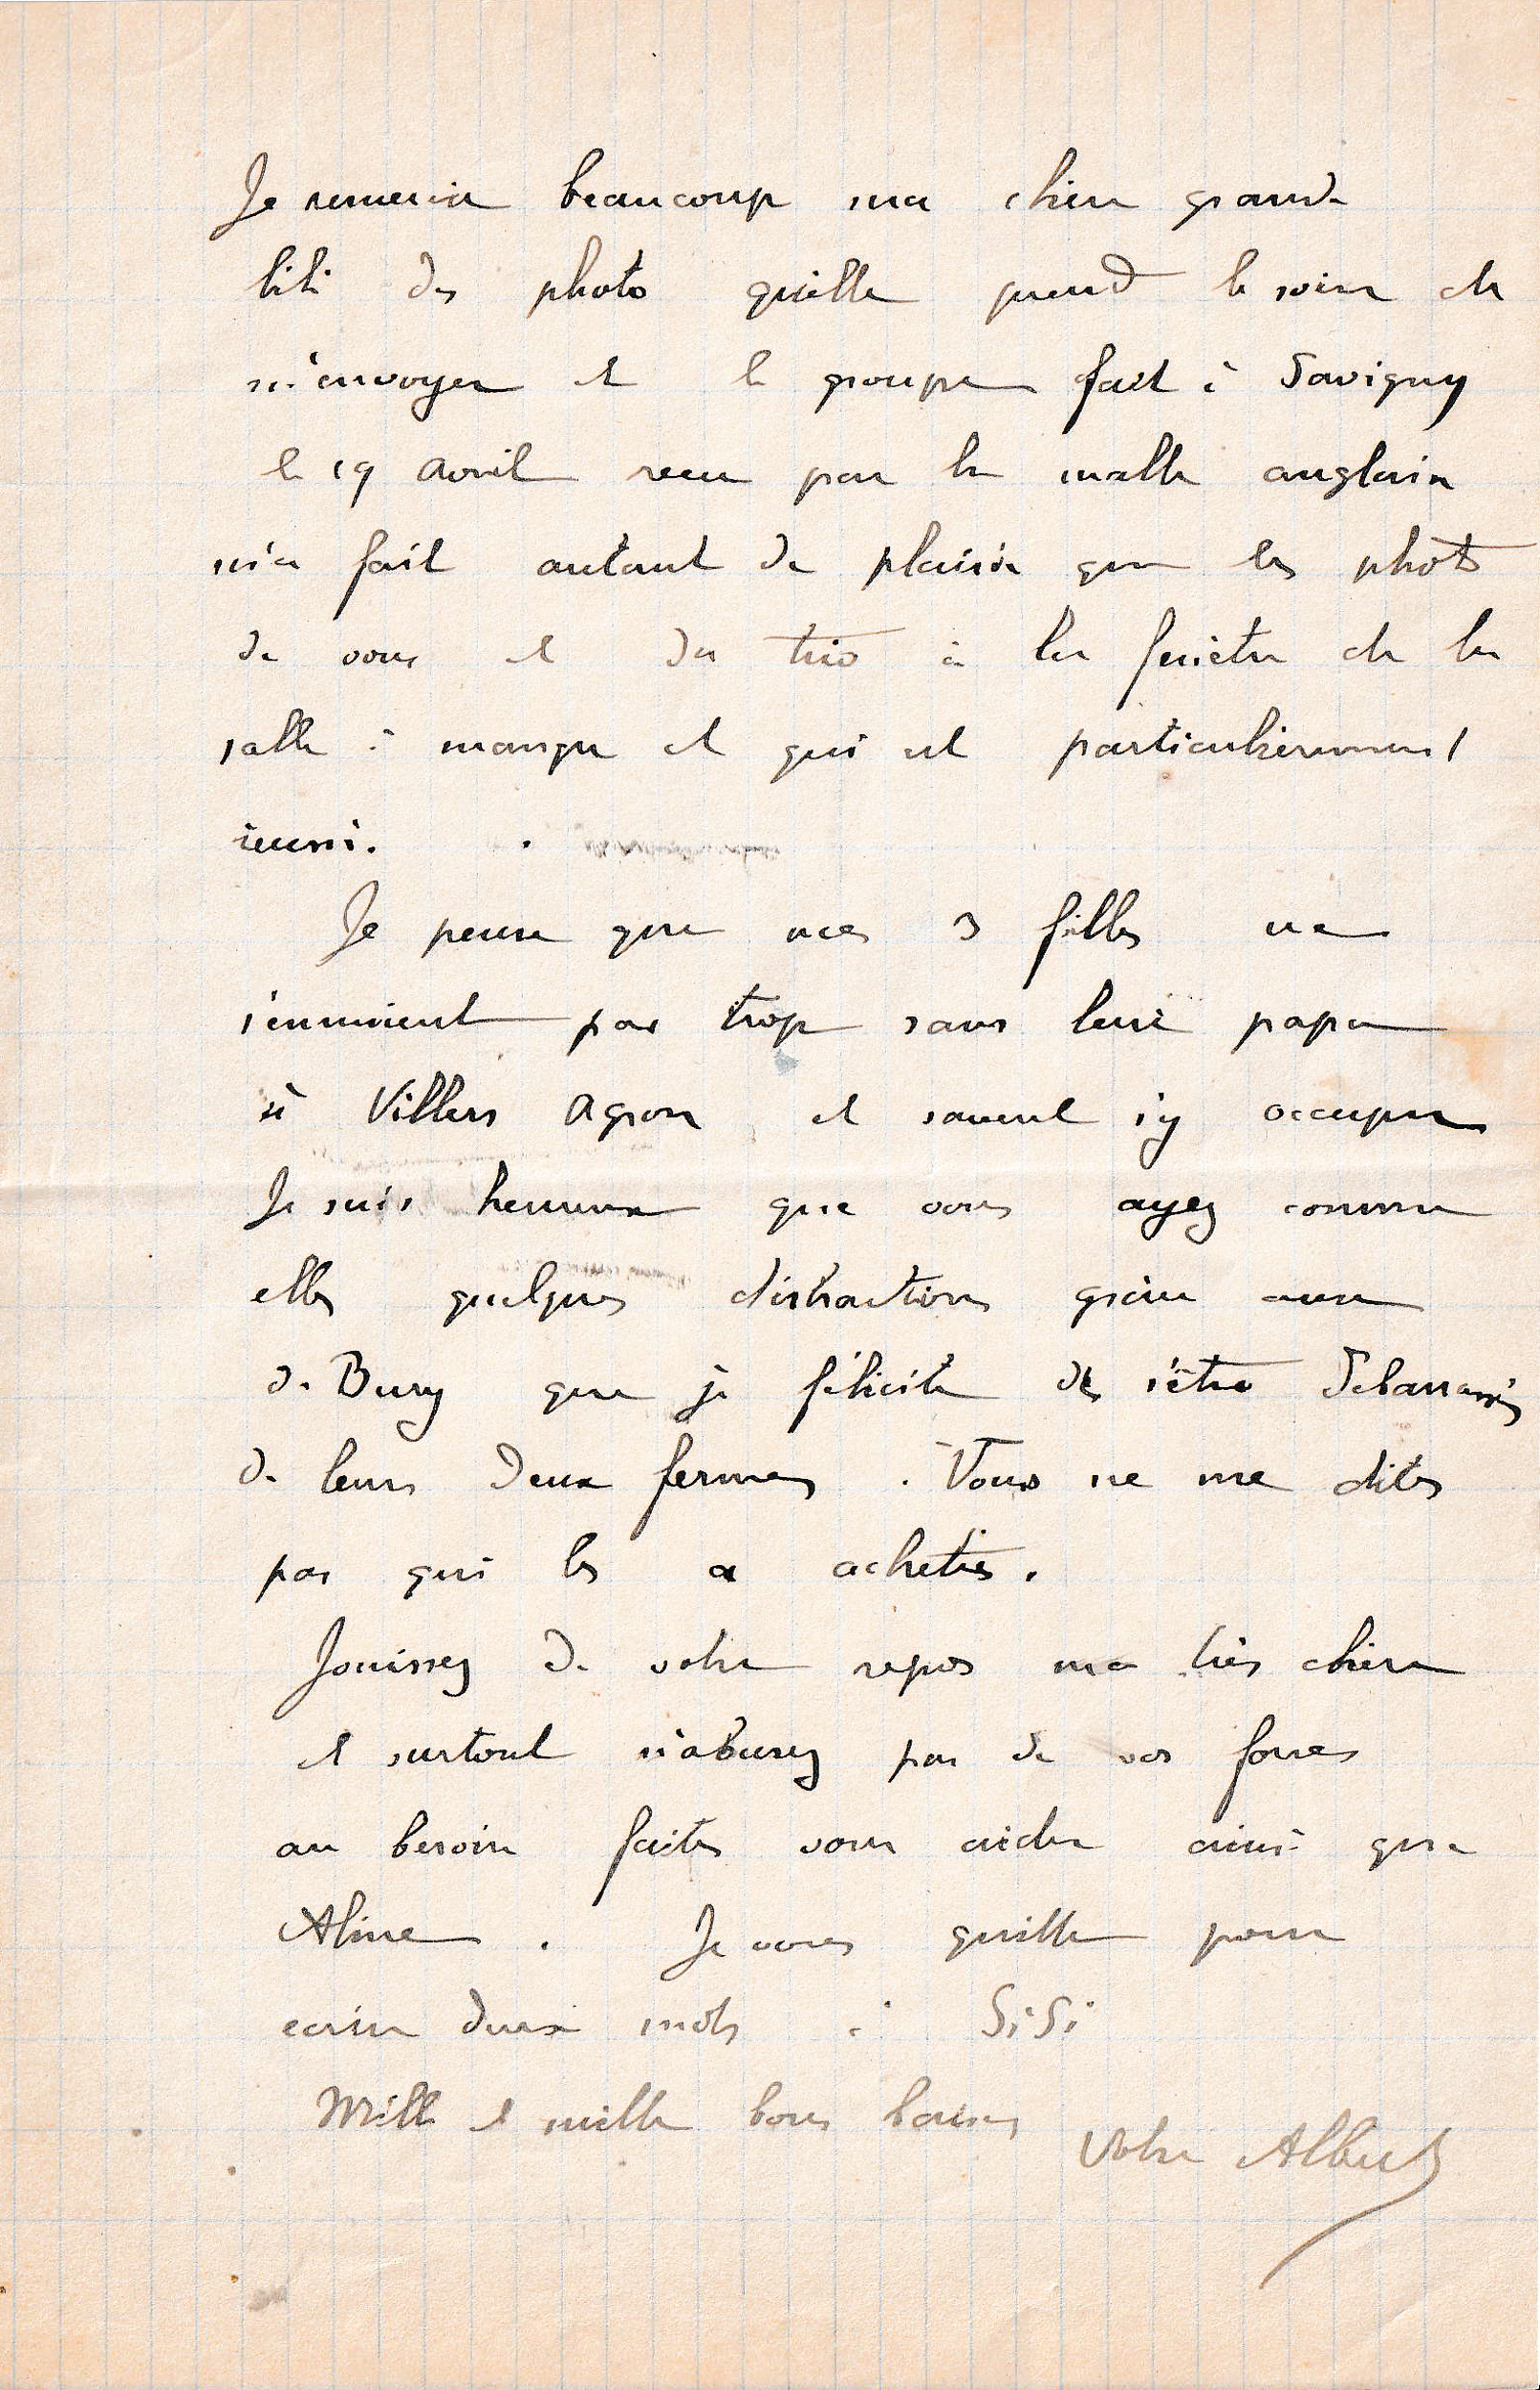 Je remercie beaucoup ma chère grande
lili des photo qu'elle prend le soin de
m'envoyer et le groupe fait à Savigny
le 19 avril recu par la malle anglaise
m'a fait autant de plaisir que les phots
de vous et du trio à la fenêtre de la
salle à manger et qui est particulièrement
reussi.
Je pense que mes 3 filles ne
s'ennuient pas trop sans leur papa
à Villers Agron et savent s'y occuper
Je suis heureux que vous ayez comme
elles quelques distractions grâce aux
de Bury que je félicite de s'être debarrassés
de leurs deux fermes. Vous ne me dites
pas qui les a achetés.
Jouissez de votre repos ma très chère
et surtout n'abusez pas de vos forces
au besoin faites vous aider ainsi que
Aline. Je vous quitte pour
ecrire deux mots à
Mille et mille bons baisers
Votre Albert